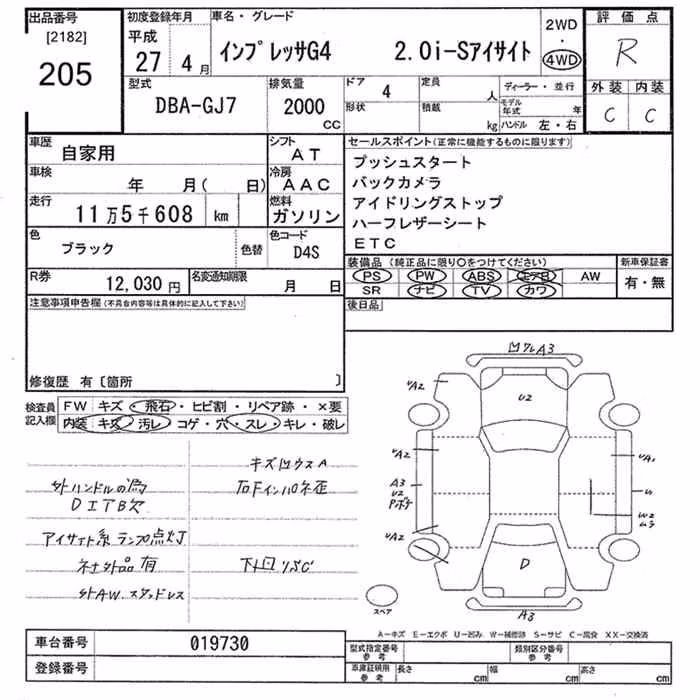 出品番号
[2182]
205
初度登録年月
平成
27 4 月
車名・グレード
インプレッサG4 2.0i-Sアイサイト
2WD
・
4WD
評価点
R
外装 内装
C C
型式
DBA-GJ7
排気量
2000
CC
ドア 4
形状
定員 人
積載 kg
ディーラー・並行
モデル年式 年
ハンドル 左・右
車歴
自家用
シフト
AT
車検
年 月( 日)
冷房
AAC
走行
11万5千608 km
燃料
ガソリン
色
ブラック
色替
色コード
D4S
R券
12,030 円
名変通知期限
月 日
セールスポイント(正常に機能するものに限ります)
プッシュスタート
バックカメラ
アイドリングストップ
ハーフレザーシート
ETC
装備品 (純正品に限り○をつけてください)
PS PW ABS エアB AW
SR ナビ TV カワ
新車保証書
有・無
後日品
注意事項申告欄(不具合内容等は具体的に記入して下さい)
修復歴 有〔箇所 〕
検査員
記入欄
FW キズ・飛石・ヒビ割・リペア跡・×要
内装・キズ・汚レ・コゲ・穴・スレ・キレ・破レ
キズ凹ウスA
外ハンドルの為
DITB欠
右Fインパネ歪
アイサイト系ランプ点灯
社外品有
下廻りSC
外AW.スタッドレス
凹ワレA3
UA2
U2
UA2
UA1
A3
U2
Pボケ
U
W2
ムラ
UA2
D
A3
スペア
A-キズ E-エクボ U-凹み W-補修跡 S-サビ C-腐食 XX-交換済
車台番号 019730
登録番号
型式指定番号
参考
類別区分番号
参考
車庫証明用
参考
長さ cm 幅 cm 高さ cm